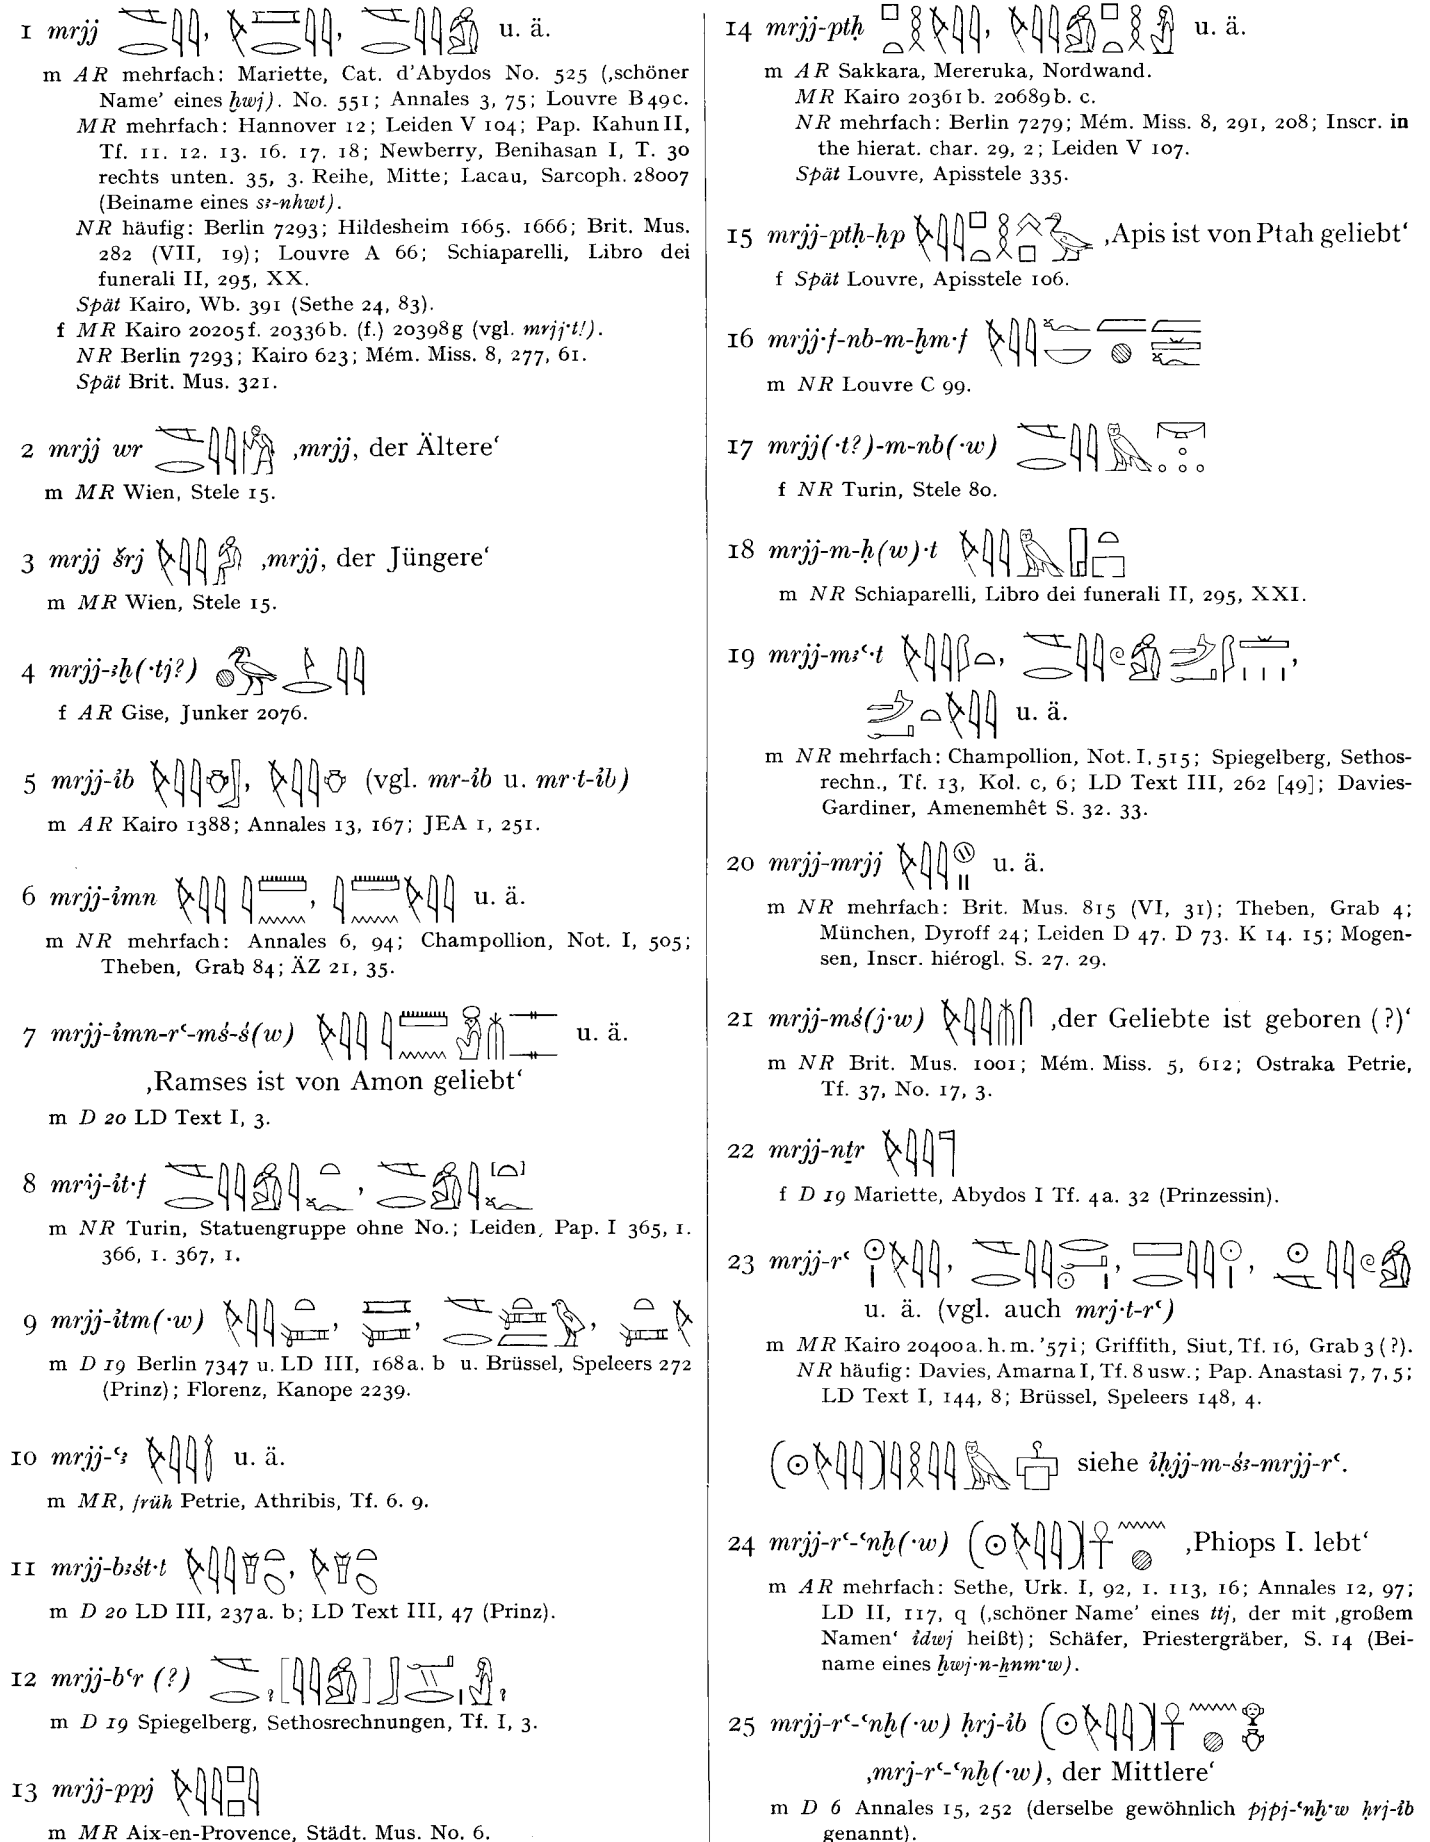 1 mrjj 𓌻𓂋𓇋𓇋, 𓌸𓈘𓂋𓇋𓇋, 𓌻𓂋𓇋𓇋𓀁 u. ä.
m AR mehrfach: Mariette, Cat. d'Abydos No. 525 (‚schöner
Name' eines ḫwj). No. 551; Annales 3, 75; Louvre B 49 c.
MR mehrfach: Hannover 12; Leiden V 104; Pap. Kahun II,
Tf. 11. 12. 13. 16. 17. 18; Newberry, Benihasan I, T. 30
rechts unten. 35, 3. Reihe, Mitte; Lacau, Sarcoph. 28007
(Beiname eines sꜣ-nhwt).
NR häufig: Berlin 7293; Hildesheim 1665. 1666; Brit. Mus.
282 (VII, 19); Louvre A 66; Schiaparelli, Libro dei
funerali II, 295, XX.
Spät Kairo, Wb. 391 (Sethe 24, 83).
f MR Kairo 20205 f. 20336 b. (f.) 20398 g (vgl. mrjj·t!).
NR Berlin 7293; Kairo 623; Mém. Miss. 8, 277, 61.
Spät Brit. Mus. 321.
2 mrjj wr 𓌻𓂋𓇋𓇋𓀗 ‚mrjj, der Ältere‘
m MR Wien, Stele 15.
3 mrjj šrj 𓌸𓇋𓇋𓀔 ‚mrjj, der Jüngere‘
m MR Wien, Stele 15.
4 mrjj-ꜣḫ(·tj?)
f AR Gise, Junker 2076.
5 mrjj-ỉb 𓌸𓇋𓇋𓄣𓃀, 𓌸𓇋𓇋𓄣 (vgl. mr-ỉb u. mr·t-ỉb)
m AR Kairo 1388; Annales 13, 167; JEA 1, 251.
6 mrjj-ỉmn 𓌸𓇋𓇋 𓇋𓏠𓈖, 𓇋𓏠𓈖𓌸𓇋𓇋 u. ä.
m NR mehrfach: Annales 6, 94; Champollion, Not. I, 505;
Theben, Grab 84; ÄZ 21, 35.
7 mrjj-ỉmn-rꜥ-mś-ś(w) 𓌸𓇋𓇋 𓇋𓏠𓈖𓁛𓄟𓊃𓊃 u. ä.
‚Ramses ist von Amon geliebt‘
m D 20 LD Text I, 3.
8 mrij-ỉt·f 𓌻𓂋𓇋𓇋𓀁𓇋𓏏𓆑, 𓌻𓂋𓀁𓇋[𓏏]𓆑
m NR Turin, Statuengruppe ohne No.; Leiden, Pap. I 365, 1.
366, 1. 367, 1.
9 mrjj-ỉtm(·w) 𓌸𓇋𓇋𓏏𓍃, 𓈘𓍃, 𓌻𓂋𓏏𓍃𓐝𓅱, 𓏏𓍃𓌸
m D 19 Berlin 7347 u. LD III, 168 a. b u. Brüssel, Speleers 272
(Prinz); Florenz, Kanope 2239.
10 mrjj-ꜥꜣ 𓌸𓇋𓇋𓉻 u. ä.
m MR, früh Petrie, Athribis, Tf. 6. 9.
11 mrjj-bꜣśt·t
m D 20 LD III, 237 a. b; LD Text III, 47 (Prinz).
12 mrjj-bꜥr (?)
m D 19 Spiegelberg, Sethosrechnungen, Tf. I, 3.
13 mrjj-ppj 𓌸𓇋𓇋𓊪𓊪𓇋
m MR Aix-en-Provence, Städt. Mus. No. 6.
14 mrjj-ptḥ 𓊪𓏏𓎛𓌸𓇋𓇋, 𓌸𓇋𓇋𓀁𓊪𓏏𓎛𓀭 u. ä.
m AR Sakkara, Mereruka, Nordwand.
MR Kairo 20361 b. 20689 b. c.
NR mehrfach: Berlin 7279; Mém. Miss. 8, 291, 208; Inscr. in
the hierat. char. 29, 2; Leiden V 107.
Spät Louvre, Apisstele 335.
15 mrjj-ptḥ-ḥp 𓌸𓇋𓇋𓊪𓏏𓎛𓐑𓊪𓅭 ‚Apis ist von Ptah geliebt‘
f Spät Louvre, Apisstele 106.
16 mrjj·f-nb-m-ḫm·f
m NR Louvre C 99.
17 mrjj(·t?)-m-nb(·w) 𓌻𓂋𓇋𓇋𓅓𓋞
f NR Turin, Stele 80.
18 mrjj-m-ḥ(w)·t 𓌸𓇋𓇋𓅓𓉗𓏏𓉐
m NR Schiaparelli, Libro dei funerali II, 295, XXI.
19 mrjj-mꜣꜥ·t 𓌸𓇋𓇋𓆄𓏏,
u. ä.
m NR mehrfach: Champollion, Not. I, 515; Spiegelberg, Sethos-
rechn., Tf. 13, Kol. c, 6; LD Text III, 262 [49]; Davies-
Gardiner, Amenemhêt S. 32. 33.
20 mrjj-mrjj 𓌸𓇋𓇋𓊗𓏭 u. ä.
m NR mehrfach: Brit. Mus. 815 (VI, 31); Theben, Grab 4;
München, Dyroff 24; Leiden D 47. D 73. K 14. 15; Mogen-
sen, Inscr. hiérogl. S. 27. 29.
21 mrjj-mś(j·w) 𓌸𓇋𓇋𓄟𓋴 ‚der Geliebte ist geboren (?)‘
m NR Brit. Mus. 1001; Mém. Miss. 5, 612; Ostraka Petrie,
Tf. 37, No. 17, 3.
22 mrjj-nṯr 𓌸𓇋𓇋𓊹
f D 19 Mariette, Abydos I Tf. 4 a. 32 (Prinzessin).
23 mrjj-rꜥ 𓇳𓏤𓌸𓇋𓇋, 𓌻𓂋𓇋𓇋𓂋𓂝𓇳𓏤, 𓈘𓂋𓇋𓇋𓇳𓏤, 𓇳𓌻𓇋𓇋𓏲𓀁
u. ä. (vgl. auch mrj·t-rꜥ)
m MR Kairo 20400 a. h. m. '57 i; Griffith, Siut, Tf. 16, Grab 3 (?).
NR häufig: Davies, Amarna I, Tf. 8 usw.; Pap. Anastasi 7, 7, 5;
LD Text I, 144, 8; Brüssel, Speleers 148, 4.
(𓇳𓌸𓇋𓇋)𓇋𓎛𓇋𓇋𓅓 siehe ỉḥjj-m-śꜣ-mrjj-rꜥ.
24 mrjj-rꜥ-ꜥnḫ(·w) (𓇳𓌸𓇋𓇋)𓋹𓈖𓐍 ‚Phiops I. lebt‘
m AR mehrfach: Sethe, Urk. I, 92, 1. 113, 16; Annales 12, 97;
LD II, 117, q (‚schöner Name' eines ttj, der mit ‚großem
Namen‘ ỉdwj heißt); Schäfer, Priestergräber, S. 14 (Bei-
name eines ḫwj·n-ẖnm·w).
25 mrjj-rꜥ-ꜥnḫ(·w) ḥrj-ỉb (𓇳𓌸𓇋𓇋)𓋹𓈖𓐍𓁷𓄣
‚mrj-rꜥ-ꜥnḫ(·w), der Mittlere‘
m D 6 Annales 15, 252 (derselbe gewöhnlich pjpj-ꜥnḫ·w ḥrj-ỉb
genannt).